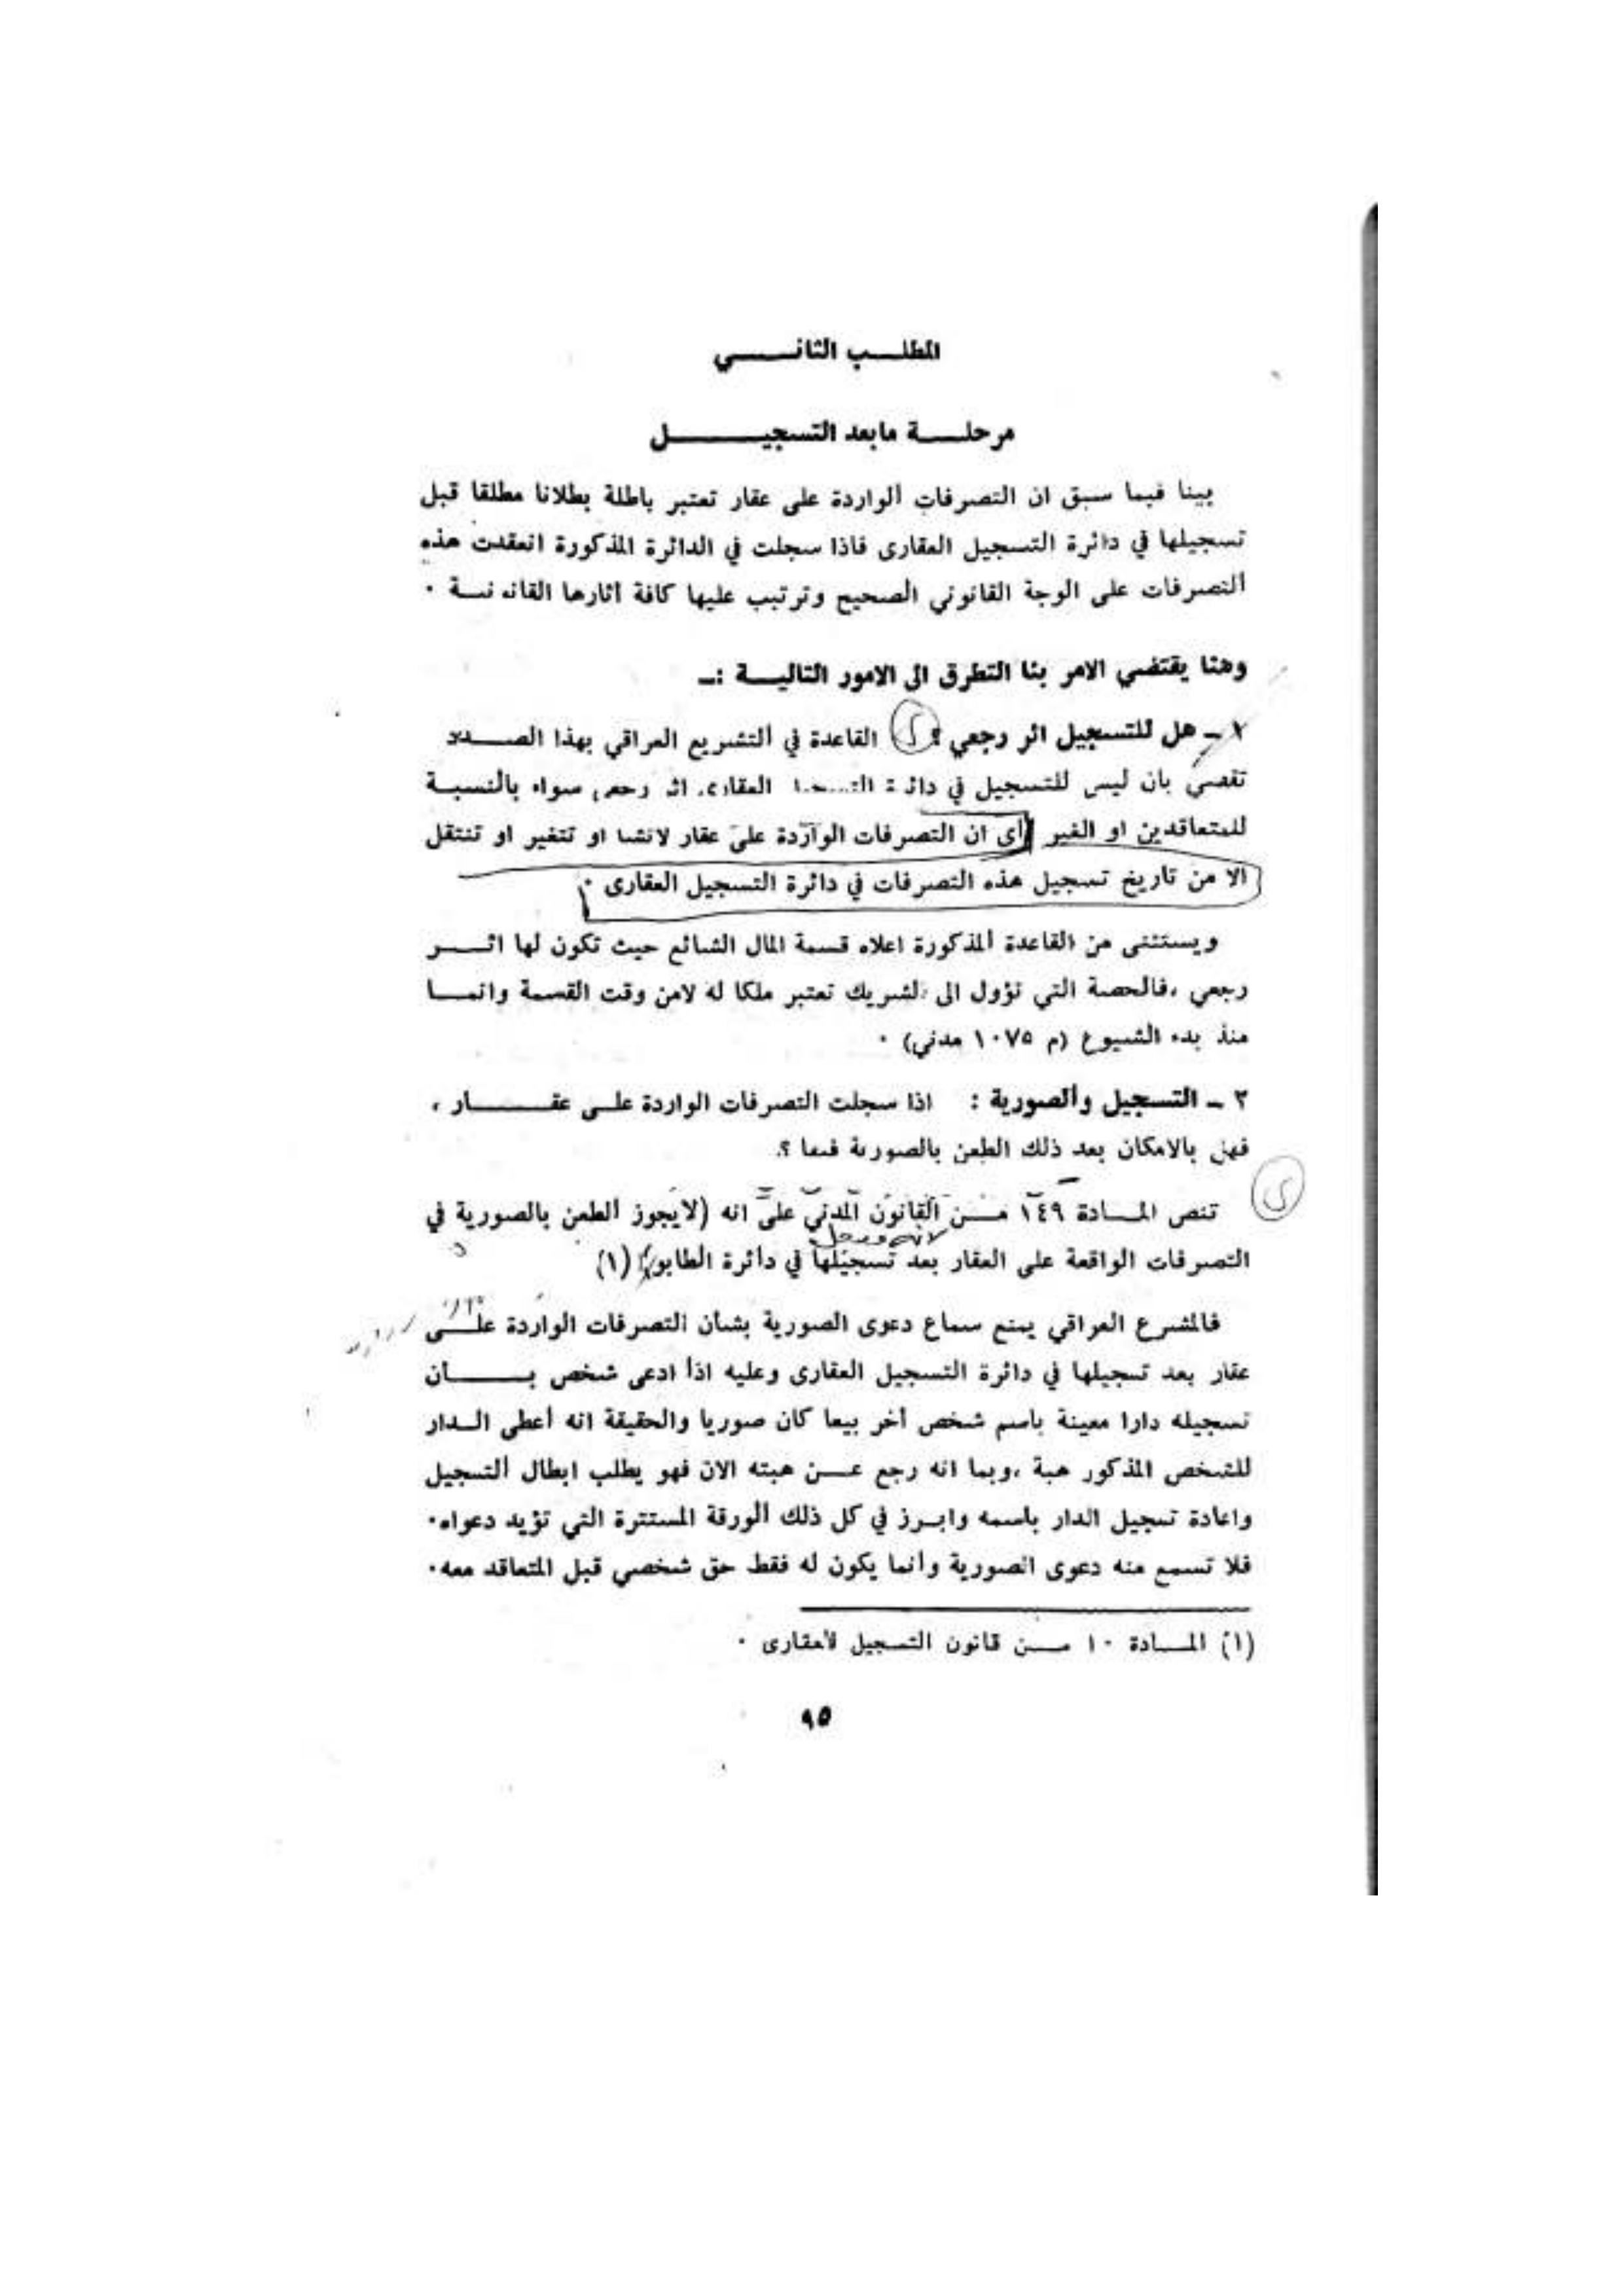 المطلب الثاني
مرحلة مابعد التسجيل
بينا فيما سبق ان التصرفات الواردة على عقار تعتبر باطلة بطلانا مطلقا قبل
تسجيلها في دائرة التسجيل العقارى فاذا سجلت في الدائرة المذكورة انعقدت هذه
التصرفات على الوجة القانوني الصحيح وترتبب عليها كافة اثارها القانونية ٠
وهنا يقتضي الامر بنا التطرق الى الامور التالية :ـ
١ ـ هل للتسجيل اثر رجعي ؟ القاعدة في التشريع العراقي بهذا الصدد
تقضي بان ليس للتسجيل في دائرة التسجيل العقارى اثر رجعي سواء بالنسبة
للمتعاقدين او الغير أى ان التصرفات الواردة على عقار لاتنشا او تتغير او تنتقل
الا من تاريخ تسجيل هذه التصرفات في دائرة التسجيل العقارى ٠
ويستثنى من القاعدة المذكورة اعلاه قسمة المال الشائع حيث تكون لها اثر
رجعي ،فالحصة التي تؤول الى الشريك تعتبر ملكا له لامن وقت القسمة وانما
منذ بدء الشيوع (م ١٠٧٥ مدني) ٠
٢ ـ التسجيل والصورية : اذا سجلت التصرفات الواردة على عقار ،
فهل بالامكان بعد ذلك الطعن بالصورية فيها ؟.
تنص المادة ١٤٩ من القانون المدني على انه (لايجوز الطعن بالصورية في
التصرفات الواقعة على العقار بعد تسجيلها في دائرة الطابو) (١)
فالمشرع العراقي يمنع سماع دعوى الصورية بشأن التصرفات الواردة على
عقار بعد تسجيلها في دائرة التسجيل العقارى وعليه اذا ادعى شخص بأن
تسجيله دارا معينة باسم شخص أخر بيعا كان صوريا والحقيقة انه أعطى الدار
للشخص المذكور هبة ،وبما انه رجع عن هبته الان فهو يطلب ابطال التسجيل
واعادة تسجيل الدار باسمه وابرز في كل ذلك الورقة المستترة التي تؤيد دعواه٠
فلا تسمع منه دعوى الصورية وأنما يكون له فقط حق شخصي قبل المتعاقد معه٠
(١) المادة ١٠ من قانون التسجيل لاعقارى ٠
٩٥